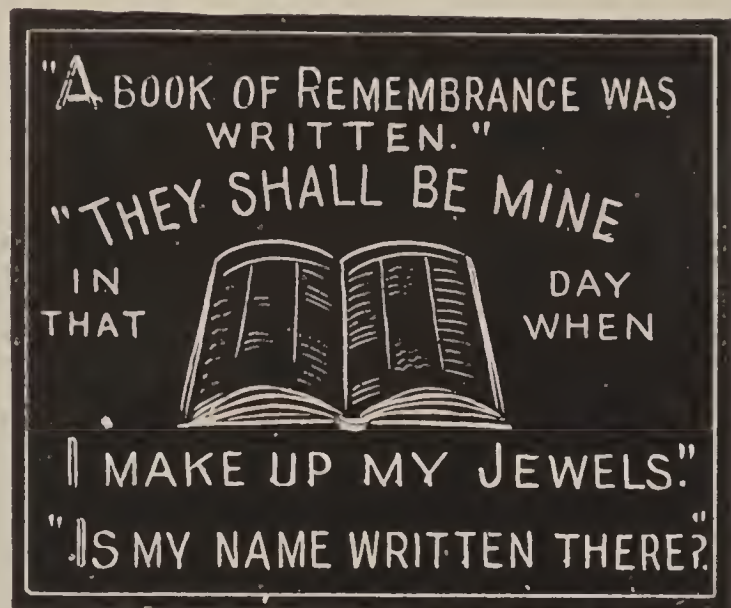 "A BOOK OF REMEMBRANCE WAS
WRITTEN."
"THEY SHALL BE MINE
IN THAT
DAY WHEN
I MAKE UP MY JEWELS."
"IS MY NAME WRITTEN THERE?"